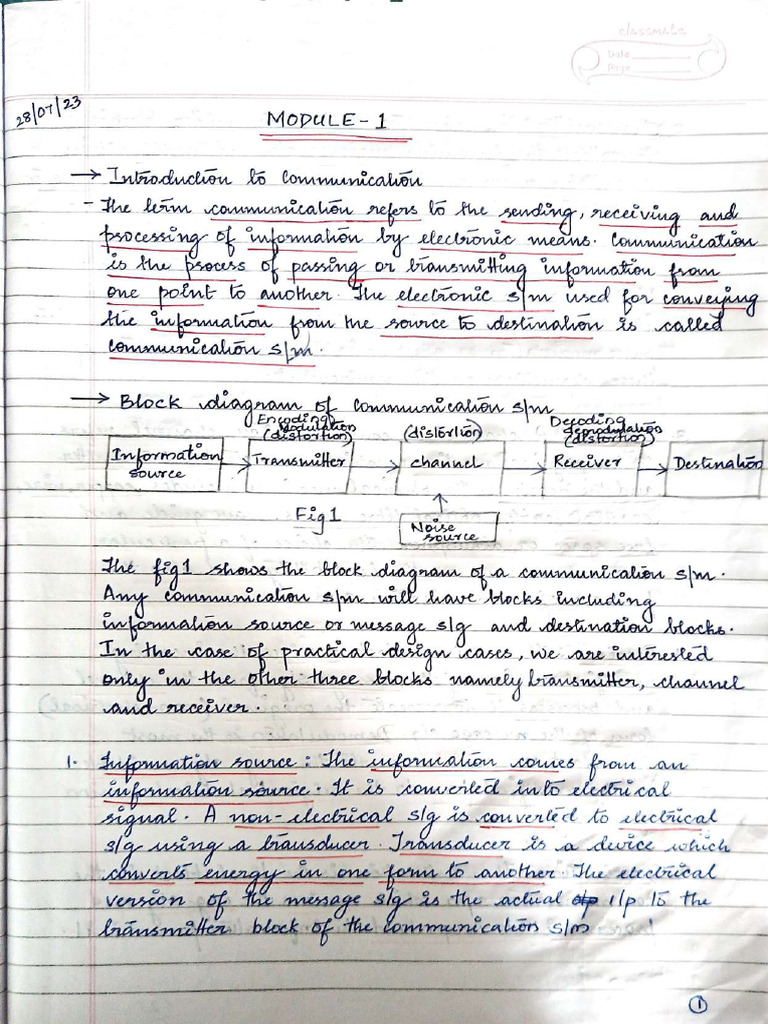 classmate
Date
Page
28/07/23
MODULE - 1
→ Introduction to Communication
- The term communication refers to the sending, receiving and
processing of information by electronic means. Communication
is the process of passing or transmitting information from
one point to another. The electronic s/m used for conveying
the information from the source to destination is called
communication s/m.
→ Block diagram of communication s/m
Encoding
Modulation
(distortion)
(distortion)
Decoding
demodulation
(distortion)
Information
source
Transmitter
channel
Receiver
Destination
Fig 1
Noise
source
The fig 1 shows the block diagram of a communication s/m.
Any communication s/m will have blocks including
information source or message s/g and destination blocks.
In the case of practical design cases, we are interested
only in the other three blocks namely transmitter, channel
and receiver.
1. Information source : The information comes from an
information source. It is converted into electrical
signal. A non-electrical s/g is converted to electrical
s/g using a transducer. Transducer is a device which
converts energy in one form to another. The electrical
version of the message s/g is the actual i/p to the
transmitter block of the communication s/m
1